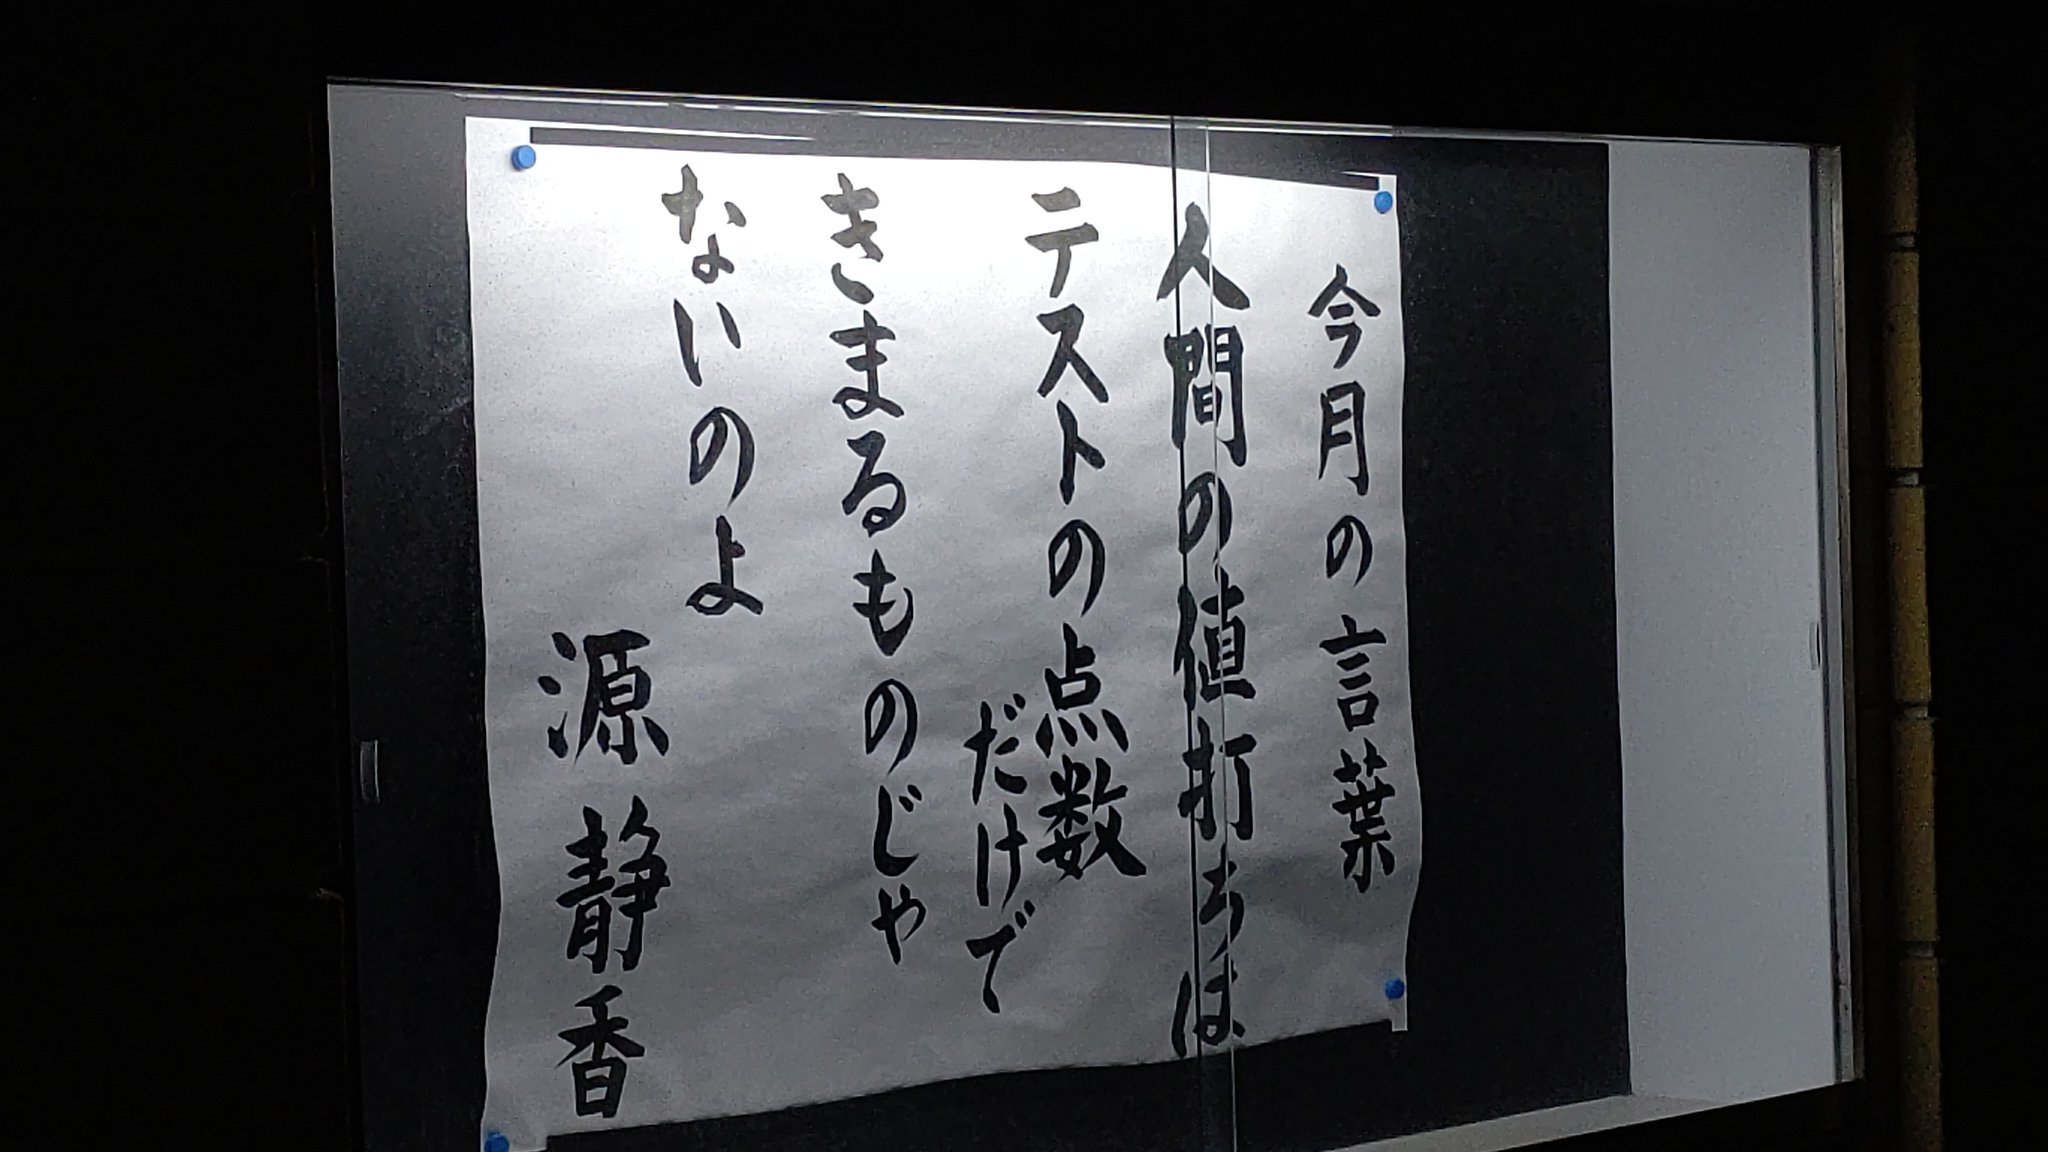 今月の言葉
人間の値打ちは
テストの点数
だけで
きまるものじゃ
ないのよ
源静香